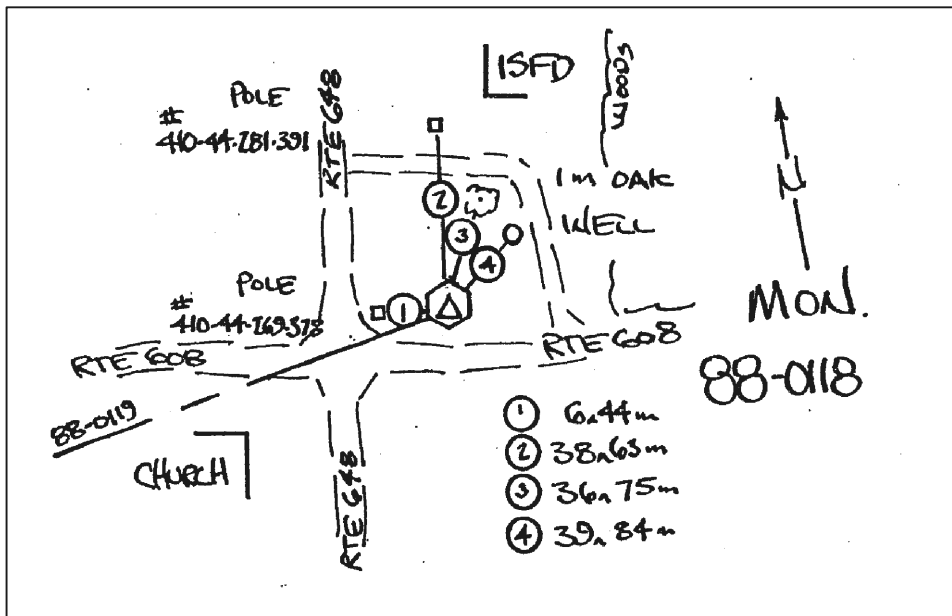 1SFD
WOODS
POLE
#
410-44-281-391
RTE 648
1m OAK
WELL
N
2
3
4
POLE
#
410-44-269-378
1
MON.
88-0118
RTE 608
RTE 608
88-0119
CHURCH
RTE 648
1 6.44m
2 38.63m
3 36.75m
4 39.84m